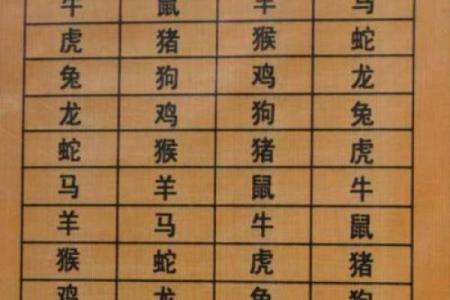 牛 鼠 羊 马
虎 猪 猴 蛇
兔 狗 鸡 龙
龙 鸡 狗 兔
蛇 猴 猪 虎
马 羊 鼠 牛
羊 马 牛 鼠
猴 蛇 虎 猪
鸡 龙 兔 狗